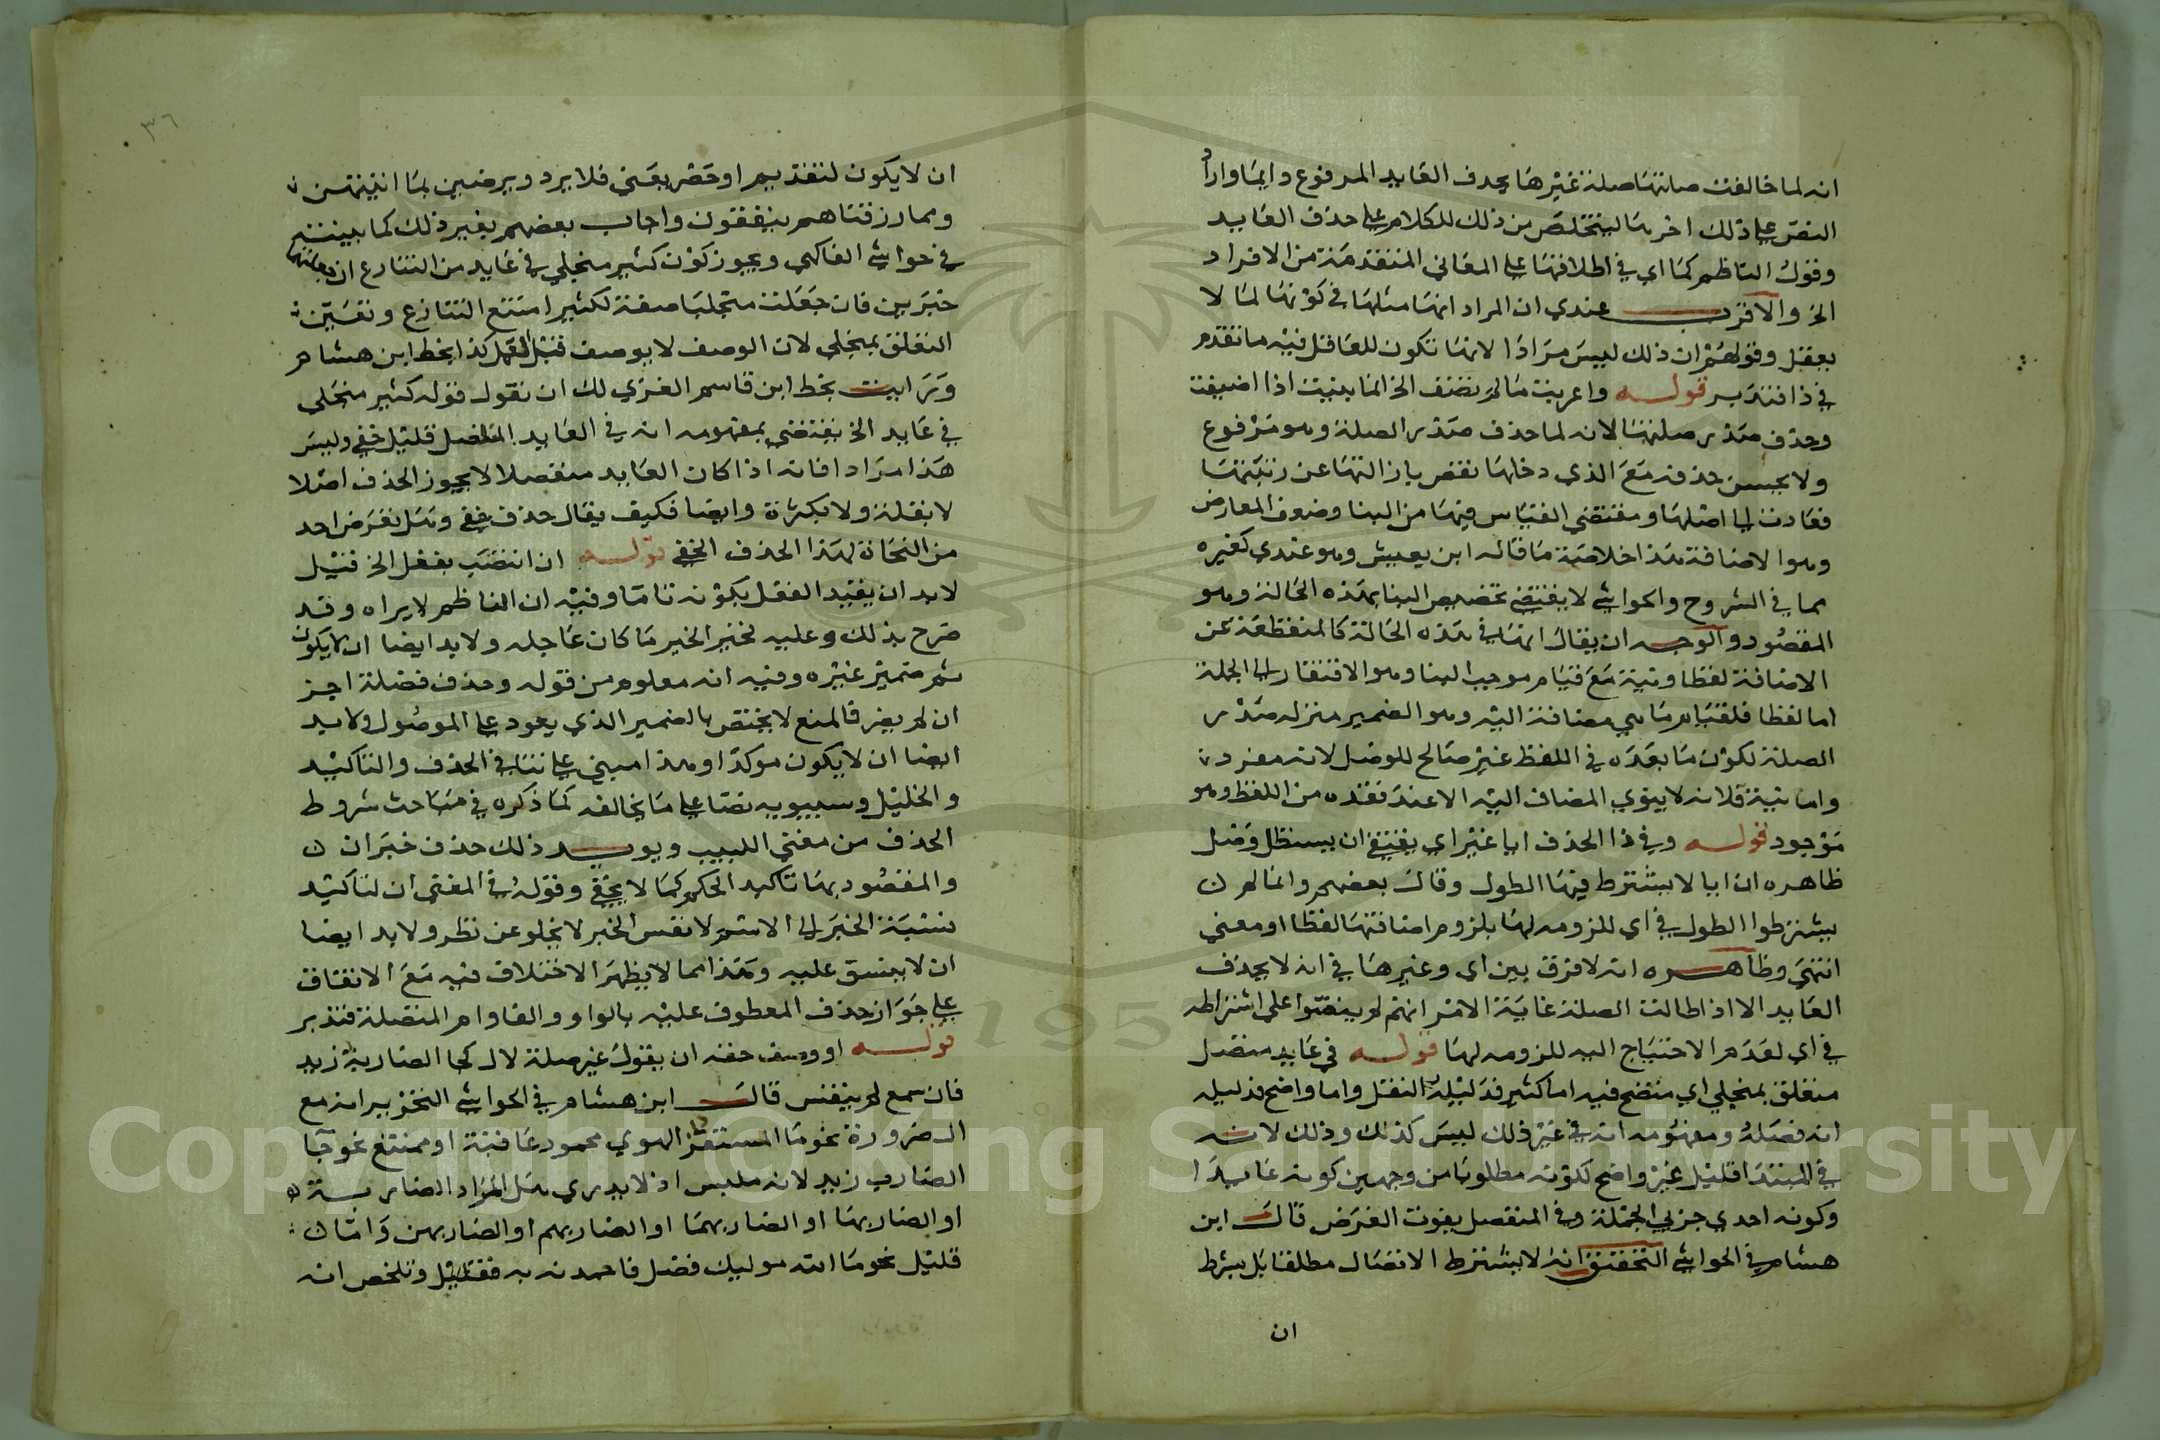 انه لما خالفت صلتها صلة غيرها بحذف العايد المرفوع وايضا واراد
النص على ذلك اخرها ليتخلص من ذلك للكلام على حذف العايد
وقول الناظم كما اي في اطلاقها على المعاني المتقدمة من الافراد
الخ والاقرب عندي ان المراد انها مثلها في كونها لما لا
يعقل وقولهم ان ذلك ليس مرادا لانها تكون للعاقل فيه ما تقدم
في ذا فتدبر قوله واعربت ما لم تضف الخ انما بنيت اذا اضيفت
وحذف صدر صلتها لانه لما حذف صدر الصلة وهو مرفوع
ولا يحسن حذفه مع الذي دخلها نقص بازالتها عن رتبتها
فعادت الى اصلها ومقتضى القياس فيها من البنا وضعف المعارض
وهو الاضافة هذا خلاصة ما قاله ابن يعيش وهو عندي كغيره
مما في الشروح والحواشي لا يقتضي تخصيص البنا بهذه الحالة وهو
المقصود والوجه ان يقال انها في هذه الحالة كالمنقطعة عن
الاضافة لفظا ونية مع قيام موجب البنا وهو الافتقار الى الجملة
اما لفظا فلقيام ما هي مضافة اليه وهو الضمير منزله صدر
الصلة لكون ما بعده في اللفظ غير صالح للوصل لانه مفرد
واما نية فلانه لا ينوي المضاف اليه الا عند فقده من اللفظ وهو
موجود قوله وفي ذا الحذف ايا غير اي يقتفي ان يستطل وصل
ظاهره ان ايا لا يشترط فيها الطول وقال بعضهم وانما لم
يشترطوا الطول في اي للزومه لها بلزوم اضافتها لفظا او معنى
انتهى وظاهره انه لا فرق بين اي وغيرها في انه لا يحذف
العايد الا اذا طالت الصلة غاية الامر انهم لم ينصوا على اشتراطه
في اي لعدم الاحتياج اليه للزومه لها قوله في عايد متصل
متعلق بمنجلي اي متضح فيه اما كثير فدليله النقل واما واضح فدليله
انه فضلة ومفهومه انه في غير ذلك ليس كذلك وذلك لانه
في المبتدا قليل غير واضح لكونه مطلوبا من وجهين كونه عايدا
وكونه احدى جزيي الجملة وفي المنفصل يفوت الغرض قال ابن
هشام في الحواشي التحقيق انه لا يشترط الاتصال مطلقا بل بشرط
ان
٣٦
ان لا يكون لتقديم او حصر يعني فلا يرد ويرضين بما اتيتهن
ومما رزقناهم ينفقون واجاب بعضهم بغير ذلك كما بينته
في حواشي الفاكهي ويجوز كون كثير منجلي في عايد من التنازع ان جعلتهما
خبرين فان جعلت منجليا صفة لكثير امتنع التنازع وتعين
التعلق بمنجلي لان الوصف لا يوصف قبل العمل كذا بخط ابن هشام
ورايت بخط ابن قاسم الغزي لك ان تقول قوله كثير منجلي
في عايد الخ يقتضي بمفهومه انه في العايد المنفصل قليل خفي وليس
هذا مرادا فانه اذا كان العايد منفصلا لا يجوز الحذف اصلا
لا بقلة ولا بكثرة وايضا فكيف يقال حذف خفي وهل تعرض احد
من النحاة لهذا الحذف الخفي قوله ان انتصب بفعل الخ قيل
لا بد ان يقيد الفعل بكونه تاما وفيه ان الناظم لا يراه وقد
صرح بذلك وعليه فخير الخير ما كان عاجله ولا بد ايضا ان لا يكون
ثم ضمير غيره وفيه انه معلوم من قوله وحذف فضلة اجز
ان لم يضر فالمنع لا يختص بالضمير الذي يعود على الموصول ولا بد
ايضا ان لا يكون موكدا وهذا مبني على تنافي الحذف والتاكيد
والخليل وسيبويه نصا على ما يخالفه كما ذكره في مباحث شروط
الحذف من مغني اللبيب ويويد ذلك حذف خبر ان
والمقصود بها تاكيد الحكم كما لا يخفى وقوله في المغني ان لتاكيد
نسبة الخبر الى الاسم لا نفس الخبر لا يخلو عن نظر ولا بد ايضا
ان لا ينسق عليه وهذا مما لا يظهر الاختلاف فيه مع الاتفاق
على جواز حذف المعطوف عليه بالواو والفا وام المتصلة فتدبر
قوله او وصف حقه ان يقول غير صلة لال كجا الضاربة زيد
فان سمع لم يقس قال ابن هشام في الحواشي التحرير انه مع
ال ضرورة نحو ما المستفز الهوى محمود عاقبة او ممتنع نحو جا
الضارب زيد لانه ملبس اذ لا يدري هل المراد الضاربه
او الضاربها او الضاربهما او الضاربهم او الضاربهن واما
قليل نحو ما الله موليك فضل فاحمدنه به فقليل وتلخص انه